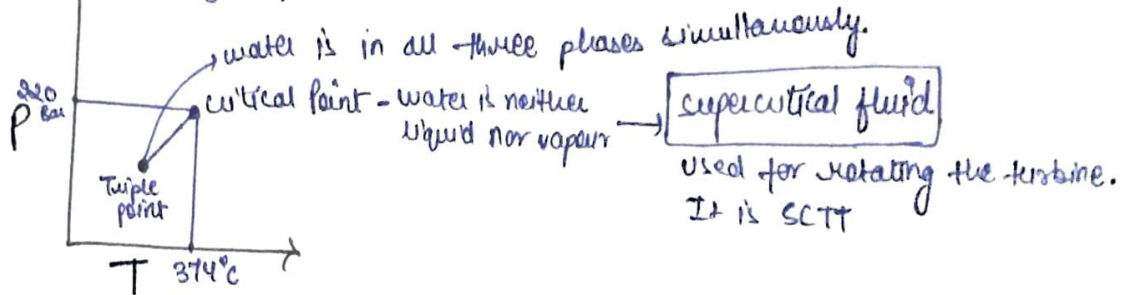 water is in all three phases simultaneously.
220
Bar
P
critical Point - water is neither
liquid nor vapour
supercritical fluid
used for rotating the turbine.
It is SCTT
Triple
point
T
374°C